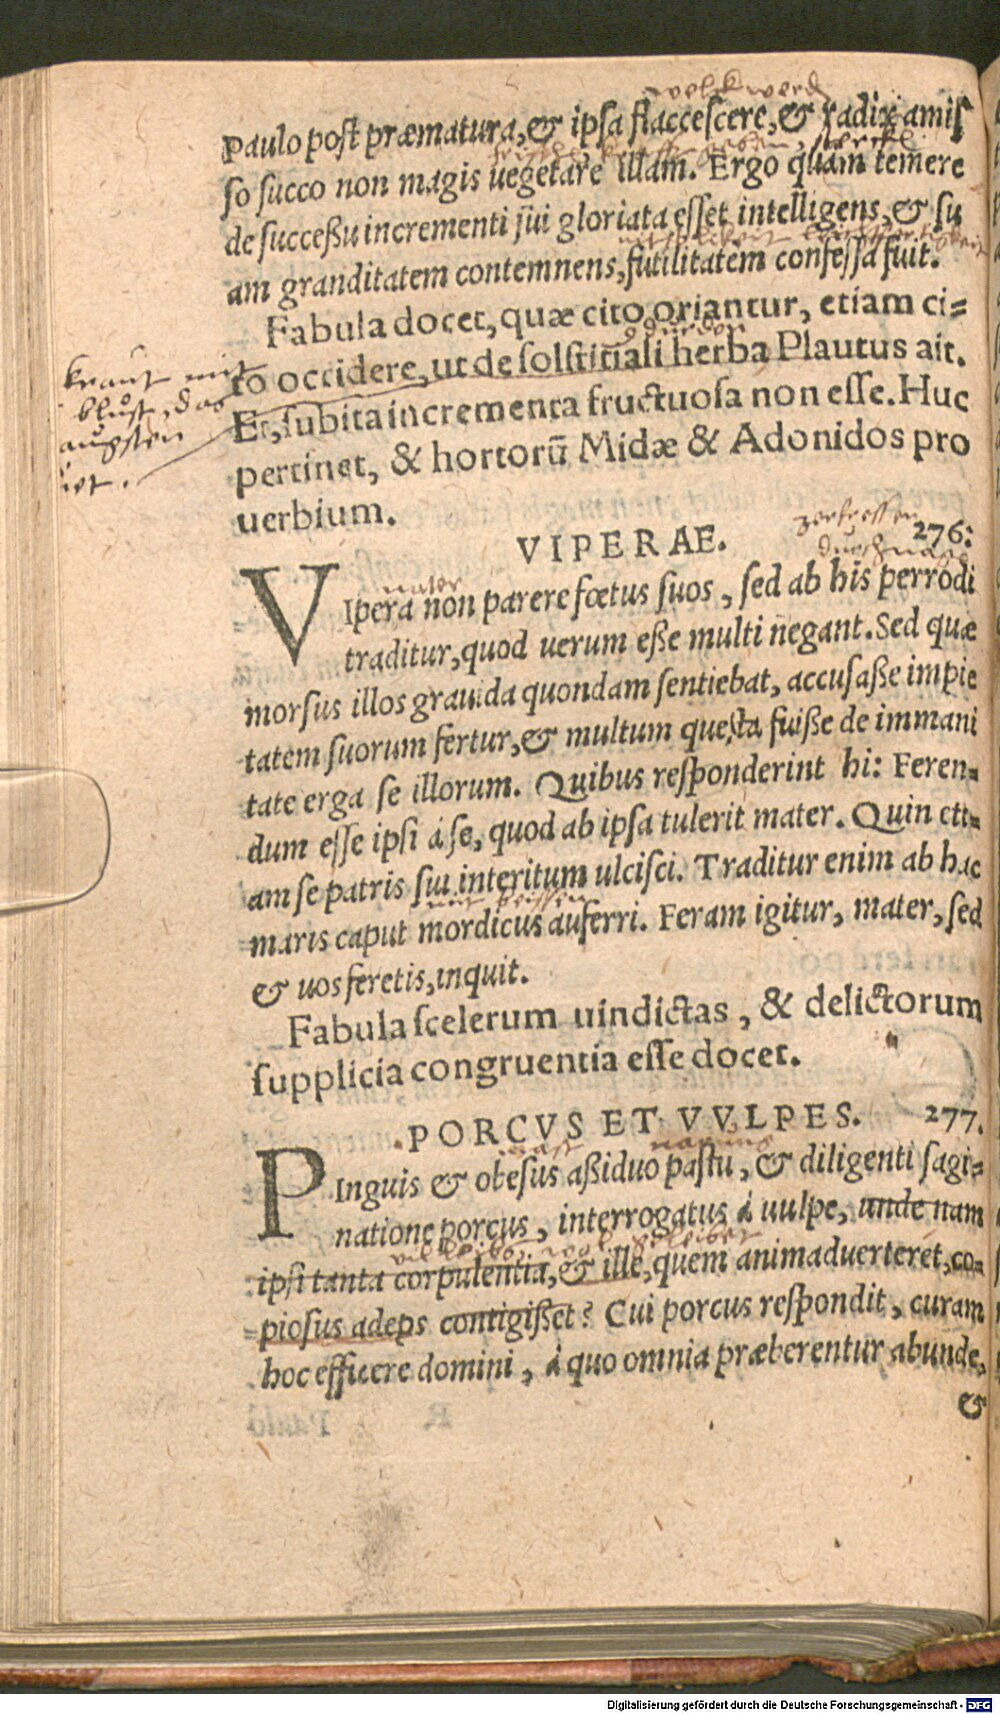 velck werd
Paulo post præmatura, & ipsa flaccescere, & radix amis
so succo non magis uegetare illam. Ergo quàm temere
de succeßu incrementi sui gloriata esset intelligens, & su
am granditatem contemnens, futilitatem confessa fuit.
Fabula docet, quæ cito oriantur, etiam ci=
to occidere, ut de solstitiali herba Plautus ait.
Et, subita incrementa fructuosa non esse. Huc
pertinet, & hortorũ Midæ & Adonidos pro
uerbium.
kraut mit
blust, das
augsten
zerfressen
VIPERAE. 276.
mater
VIpera non parere fœtus suos, sed ab his perrodi
traditur, quod uerum eße multi negant. Sed quæ
morsus illos grauida quondam sentiebat, accusaße impie
tatem suorum fertur, & multum questa fuiße de immani
tate erga se illorum. Quibus responderint hi: Feren=
dum esse ipsi à se, quod ab ipsa tulerit mater. Quin eti=
am se patris sui interitum ulcisci. Traditur enim ab hac
mit beissen
maris caput mordicus auferri. Feram igitur, mater, sed
& uos feretis, inquit.
Fabula scelerum uindictas, & delictorum
supplicia congruentia esse docet.
PORCVS ET VVLPES. 277.
mast
PInguis & obesus aßiduo pastu, & diligenti sagi=
natione porcus, interrogatus à uulpe, unde nam
ipsi tanta corpulentia, & ille, quem animaduerteret, co=
piosus adeps contigißet? Cui porcus respondit, curam
hoc efficere domini, à quo omnia præberentur abunde,
&
Digitalisierung gefördert durch die Deutsche Forschungsgemeinschaft - DFG